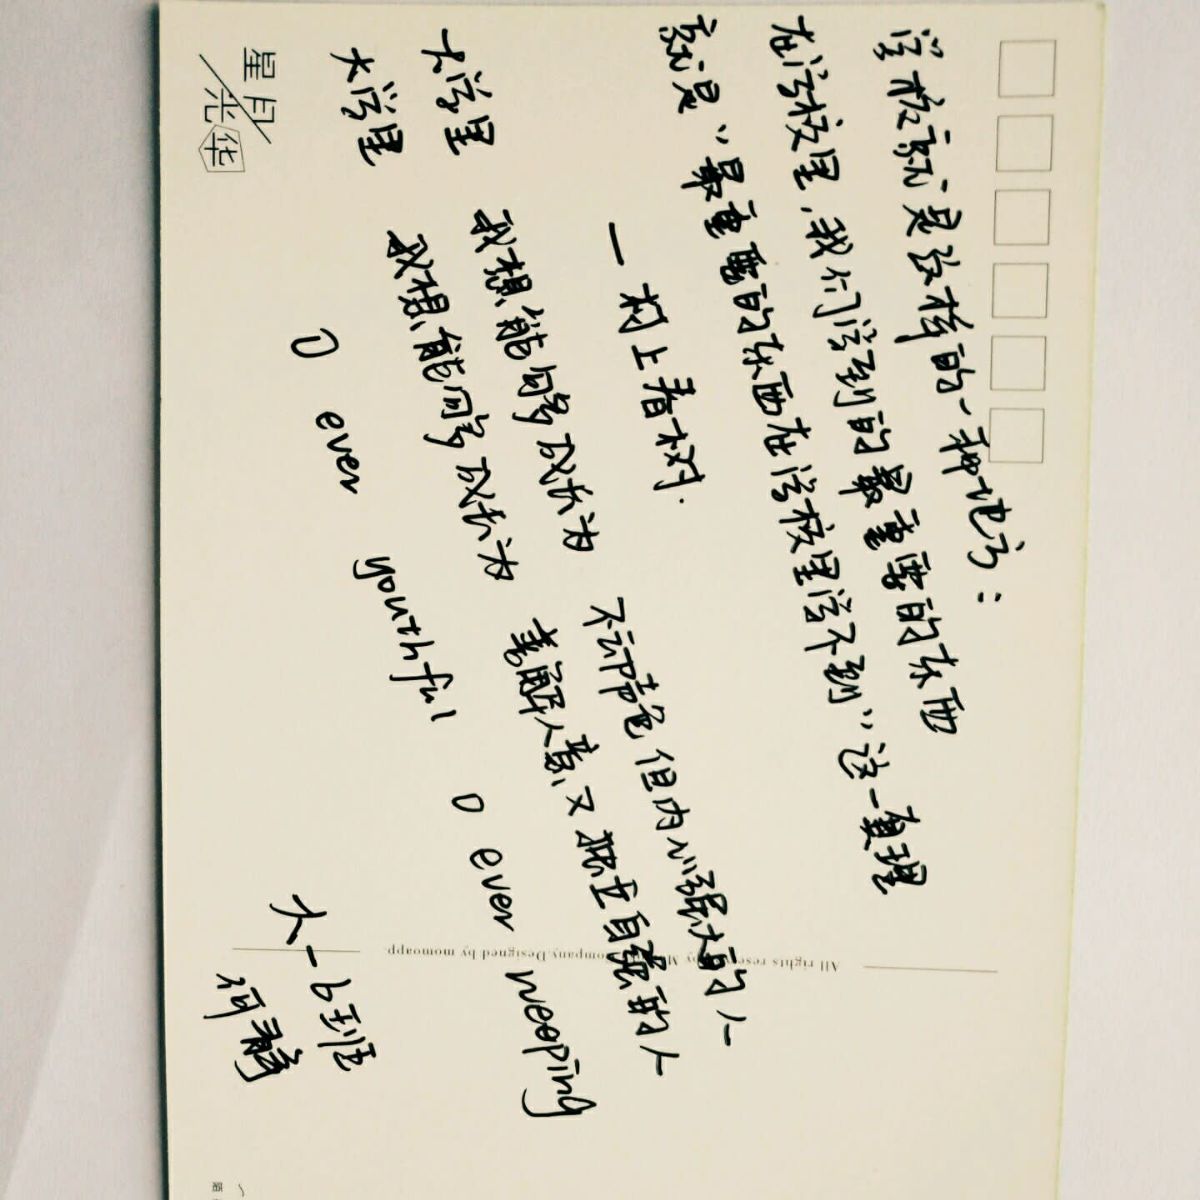 学校就是这样的一种地方：
在学校里，我们学到的最重要的东西
就是“最重要的东西在学校里学不到”这一真理
—村上春树.
大学里 我想能够成长为 不讠声色但内心强大的人
大学里 我想能间多成长为 善解人意又独立自强的人
O ever youthful O ever weeping
大一6班
何
星月
光华
All rights reserved by M ompany.Designed by momoapp.